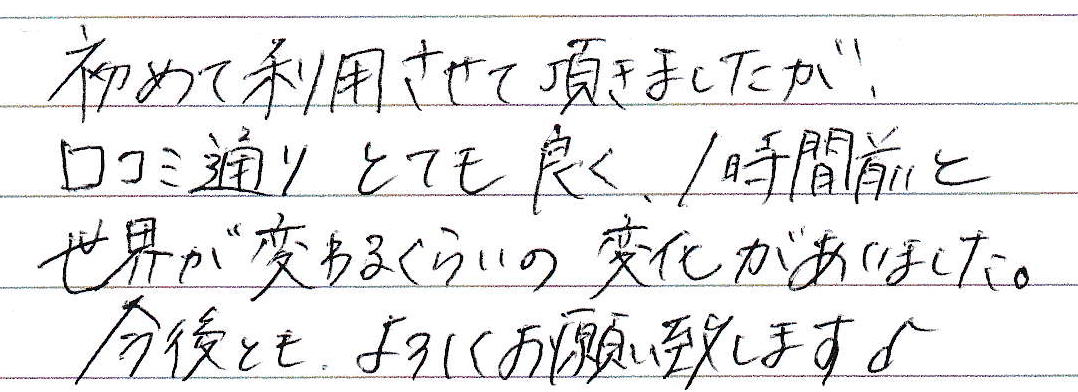 初めて利用させて頂きましたが、
口コミ通り とても 良く、1時間前と
世界が変わるくらいの 変化がありました。
今後とも、よろしくお願い致します♪